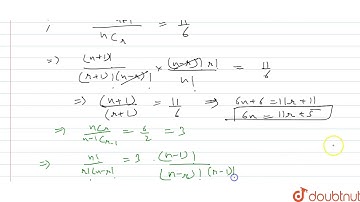 nCr 6
⇒ (n+1)! / (r+1)!(n-r)! × (n-r)! r! / n! = 11/6
⇒ (n+1)/(r+1) = 11/6 ⇒ 6n+6 = 11r+11
6n = 11r+5
⇒ nCr / n-1Cr-1 = 6/2 = 3
⇒ n! / r!(n-r)! = 3 (n-1)! / (n-r)! (r-1)!
doubtnut